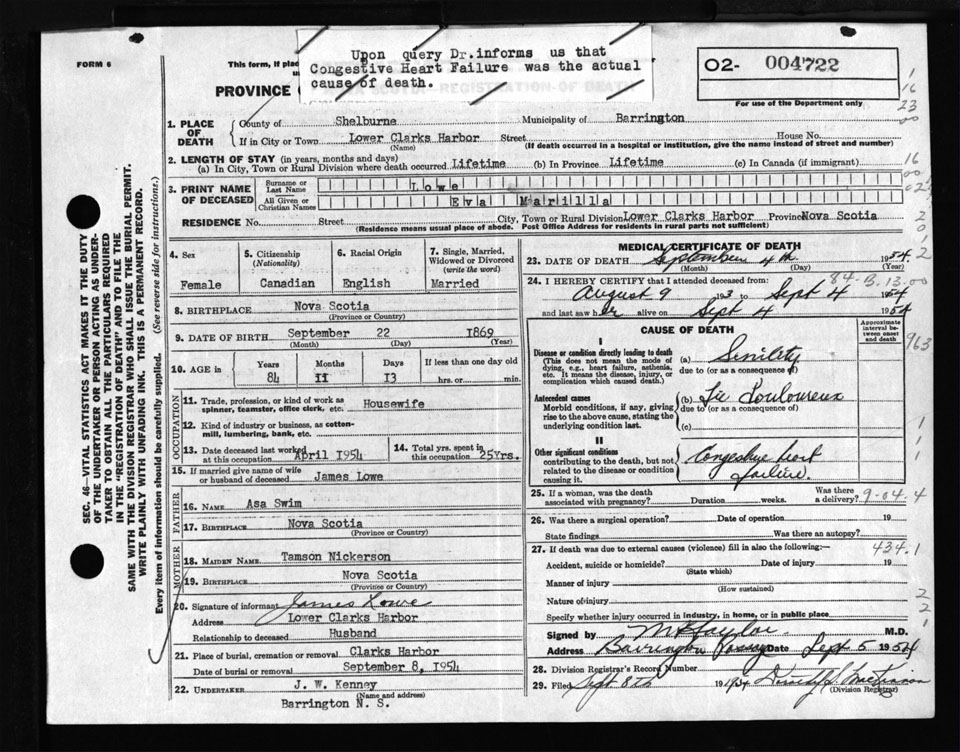 FORM 6
This form, if plac
Upon query Dr.informs us that
Congestive Heart Failure was the actual
cause of death.
02- 004722
For use of the Department only
PROVINCE O
1. PLACE OF DEATH County of Shelburne Municipality of Barrington
If in City or Town Lower Clarks Harbor Street House No.
(Name) (If death occurred in a hospital or institution, give the name instead of street and number)
2. LENGTH OF STAY (in years, months and days)
(a) In City, Town or Rural Division where death occurred Lifetime (b) In Province Lifetime (c) In Canada (if immigrant)
3. PRINT NAME OF DECEASED Surname or Last Name Lowe
All Given or Christian Names Eva Marilla
RESIDENCE No. Street City, Town or Rural Division Lower Clarks Harbor Province Nova Scotia
(Residence means usual place of abode. Post Office Address for residents in rural parts not sufficient)
4. Sex Female
5. Citizenship (Nationality) Canadian
6. Racial Origin English
7. Single, Married, Widowed or Divorced (write the word) Married
8. BIRTHPLACE Nova Scotia
(Province or Country)
9. DATE OF BIRTH September 22 1869
(Month) (Day) (Year)
10. AGE in Years Months Days If less than one day old
84 11 13 hrs. or min.
OCCUPATION
11. Trade, profession, or kind of work as spinner, teamster, office clerk, etc. Housewife
12. Kind of industry or business, as cotton-mill, lumbering, bank, etc.
13. Date deceased last worked at this occupation April 1954
14. Total yrs. spent in this occupation 25Yrs.
15. If married give name of wife or husband of deceased James Lowe
FATHER
16. NAME Asa Swim
17. BIRTHPLACE Nova Scotia
(Province or Country)
MOTHER
18. MAIDEN NAME Tamson Nickerson
19. BIRTHPLACE Nova Scotia
(Province or Country)
20. Signature of informant James Lowe
Address Lower Clarks Harbor
Relationship to deceased Husband
21. Place of burial, cremation or removal Clarks Harbor
Date of burial or removal September 8, 1954
22. UNDERTAKER J. W. Kenney
(Name and address)
Barrington N. S.
MEDICAL CERTIFICATE OF DEATH
23. DATE OF DEATH September 4th 1954
(Month) (Day) (Year)
24. I HEREBY CERTIFY that I attended deceased from:
August 9 193 to Sept 4 1954
and last saw her alive on Sept 4 1954
CAUSE OF DEATH
Approximate interval between onset and death
I
Disease or condition directly leading to death
(This does not mean the mode of dying, e.g., heart failure, asthenia, etc. It means the disease, injury, or complication which caused death.)
(a) Senility
due to (or as a consequence of)
Antecedent causes
Morbid conditions, if any, giving rise to the above cause, stating the underlying condition last.
(b) Tic Douloureux
due to (or as a consequence of)
(c)
II
Other significant conditions
contributing to the death, but not related to the disease or condition causing it.
Congestive heart
failure.
25. If a woman, was the death associated with pregnancy? Duration weeks. Was there a delivery?
9-04.4
26. Was there a surgical operation? Date of operation 19
State findings Was there an autopsy?
27. If death was due to external causes (violence) fill in also the following:—
434.1
Accident, suicide or homicide? Date of injury 19
(State which)
Manner of injury
(How sustained)
Nature of injury
Specify whether injury occurred in industry, in home, or in public place
Signed by M.D.
Address Barrington Passage Date Sept 5 1954
28. Division Registrar's Record Number
29. Filed Sept 8th 1954
(Division Registrar)
SEC. 46—VITAL STATISTICS ACT MAKES IT THE DUTY
OF THE UNDERTAKER OR PERSON ACTING AS UNDER-
TAKER TO OBTAIN ALL THE PARTICULARS REQUIRED
IN THE "REGISTRATION OF DEATH" AND TO FILE THE
SAME WITH THE DIVISION REGISTRAR WHO SHALL ISSUE THE BURIAL PERMIT.
WRITE PLAINLY WITH UNFADING INK. THIS IS A PERMANENT RECORD.
Every item of information should be carefully supplied. (See reverse side for instructions.)